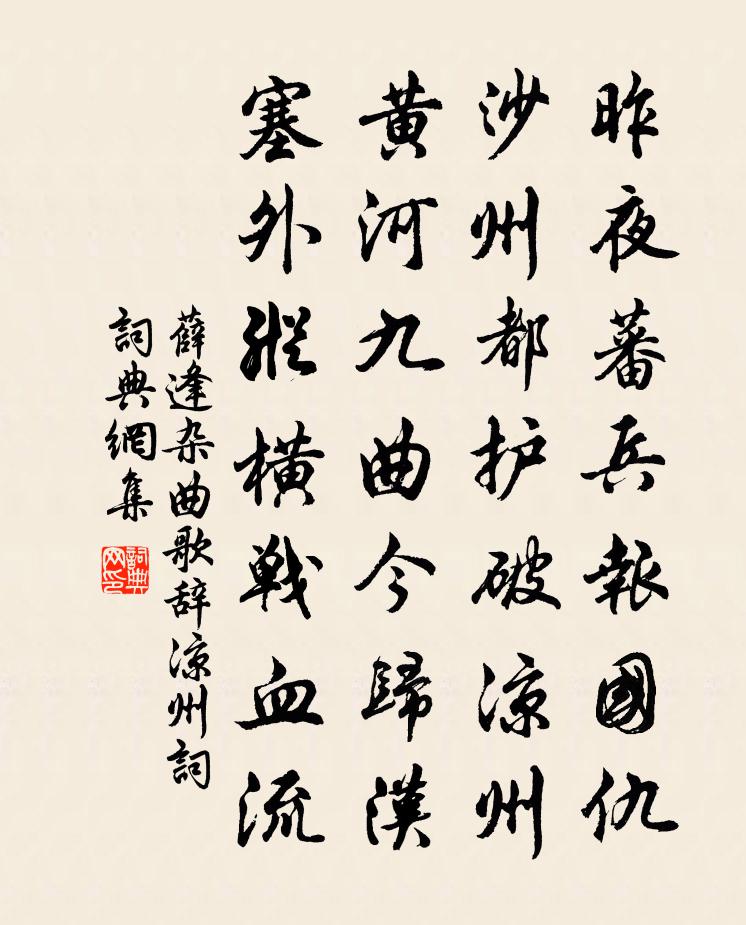 昨夜蕃兵報國仇
沙州都护破涼州
黄河九曲今歸漢
塞外縱横戦血流
薛逢杂曲歌辞涼州詞
詞典網集
詞典网印